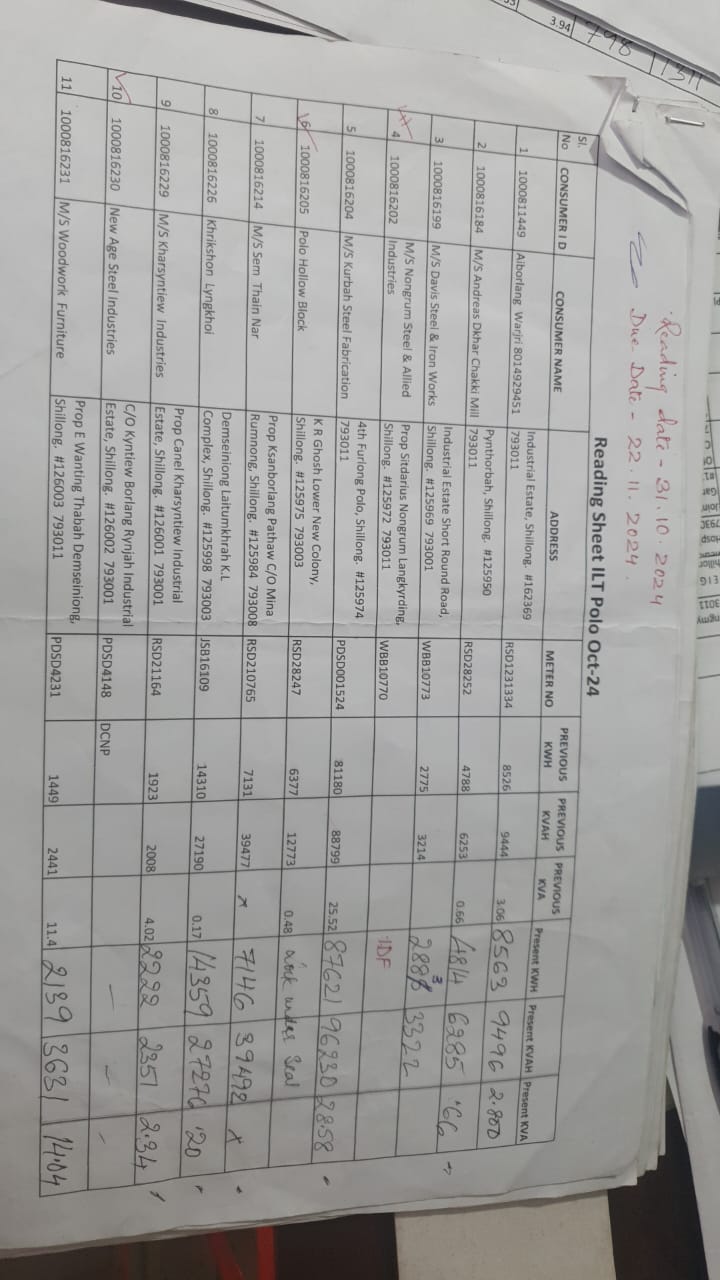 Reading date - 31.10.2024
Due Date - 22.11.2024.
Reading Sheet ILT Polo Oct-24
Sl. No CONSUMER I D CONSUMER NAME ADDRESS METER NO PREVIOUS KWH PREVIOUS KVAH PREVIOUS KVA Present KWH Present KVAH Present KVA
1 1000811449 Aiborlang Warjri 8014929451 Industrial Estate, Shillong. #162369 793011 RSD1231334 8526 9444 3.06 8563 9496 2.800
2 1000816184 M/S Andreas Dkhar Chakki Mill Pynthorbah, Shillong. #125950 793011 RSD28252 4788 6253 0.66 4814 6285 .66
3 1000816199 M/S Davis Steel & Iron Works Industrial Estate Short Round Road, Shillong. #125969 793001 WBB10773 2775 3214 2883 3322
4 1000816202 M/S Nongrum Steel & Allied Industries Prop Sitdarius Nongrum Langkyrding, Shillong. #125972 793011 WBB10770 IDF
5 1000816204 M/S Kurbah Steel Fabrication 4th Furlong Polo, Shillong. #125974 793011 PDSD001524 81180 88799 25.52 87621 96230 28.58
6 1000816205 Polo Hollow Block K R Ghosh Lower New Colony, Shillong. #125975 793003 RSD28247 6377 12773 0.48 under Seal
7 1000816214 M/S Sem Thain Nar Prop Ksanborlang Pathaw C/O Mina Rumnong, Shillong. #125984 793008 RSD210765 7131 39477 x 7146 39492 x
8 1000816226 Khrikshon Lyngkhoi Demseiniong Laitumkhrah K.L Complex, Shillong. #125998 793003 JSB16109 14310 27190 0.17 14359 27276 .20
9 1000816229 M/S Kharsyntiew Industries Prop Canel Kharsyntiew Industrial Estate, Shillong. #126001 793001 RSD21164 1923 2008 4.02 2222 2351 2.34
10 1000816230 New Age Steel Industries C/O Kyntiew Borlang Rynjah Industrial Estate, Shillong. #126002 793001 PDSD4148 DCNP - - -
11 1000816231 M/S Woodwork Furniture Prop E Wanting Thabah Demseiniong, Shillong. #126003 793011 PDSD4231 1449 2441 11.4 2139 3631 14.04
3.94
798 11311